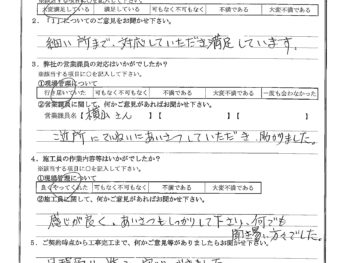 大変満足している 可もなく不可もなく 不満である 大変不満である
2．「1」についてのご意見をお聞かせ下さい。
細い所まで、対応していただき満足しています。
3．弊社の営業課員の対応はいかがでしたか？
※該当する項目に〇を記入して下さい。
①現場管理について
行き届いていた 可もなく不可もなく 不満である 大変不満である 一度も会わなかった
②営業課員に関して、何かご意見があればお聞かせ下さい。
営業課員名【 さん 】【 】【
ご近所にていねいにあいさつしていただき、助かりました。
4．施工員の作業内容等はいかがでしたか？
※該当する項目に〇を記入して下さい。
①現場管理について
良くやってくれた 可もなく不可もなく 不満である 大変不満である
②施工員に関して、何かご意見があればお聞かせ下さい。
感じが良く、あいさつもしっかりして下さり、何でも
聞き易い方々でした。
5．ご契約時点から工事完工まで、何かご意見等がありましたらお聞かせ下さい。